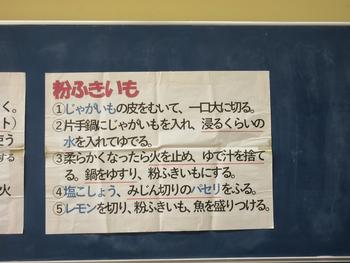 粉ふきいも
①じゃがいもの皮をむいて、一口大に切る。
②片手鍋にじゃがいもを入れ、浸るくらいの
水を入れてゆでる。
③柔らかくなったら火を止め、ゆで汁を捨て
る。鍋をゆすり、粉ふきいもにする。
④塩こしょう、みじん切りのパセリをふる。
⑤レモンを切り、粉ふきいも、魚を盛りつける。
く。
ト)
使う
する
火